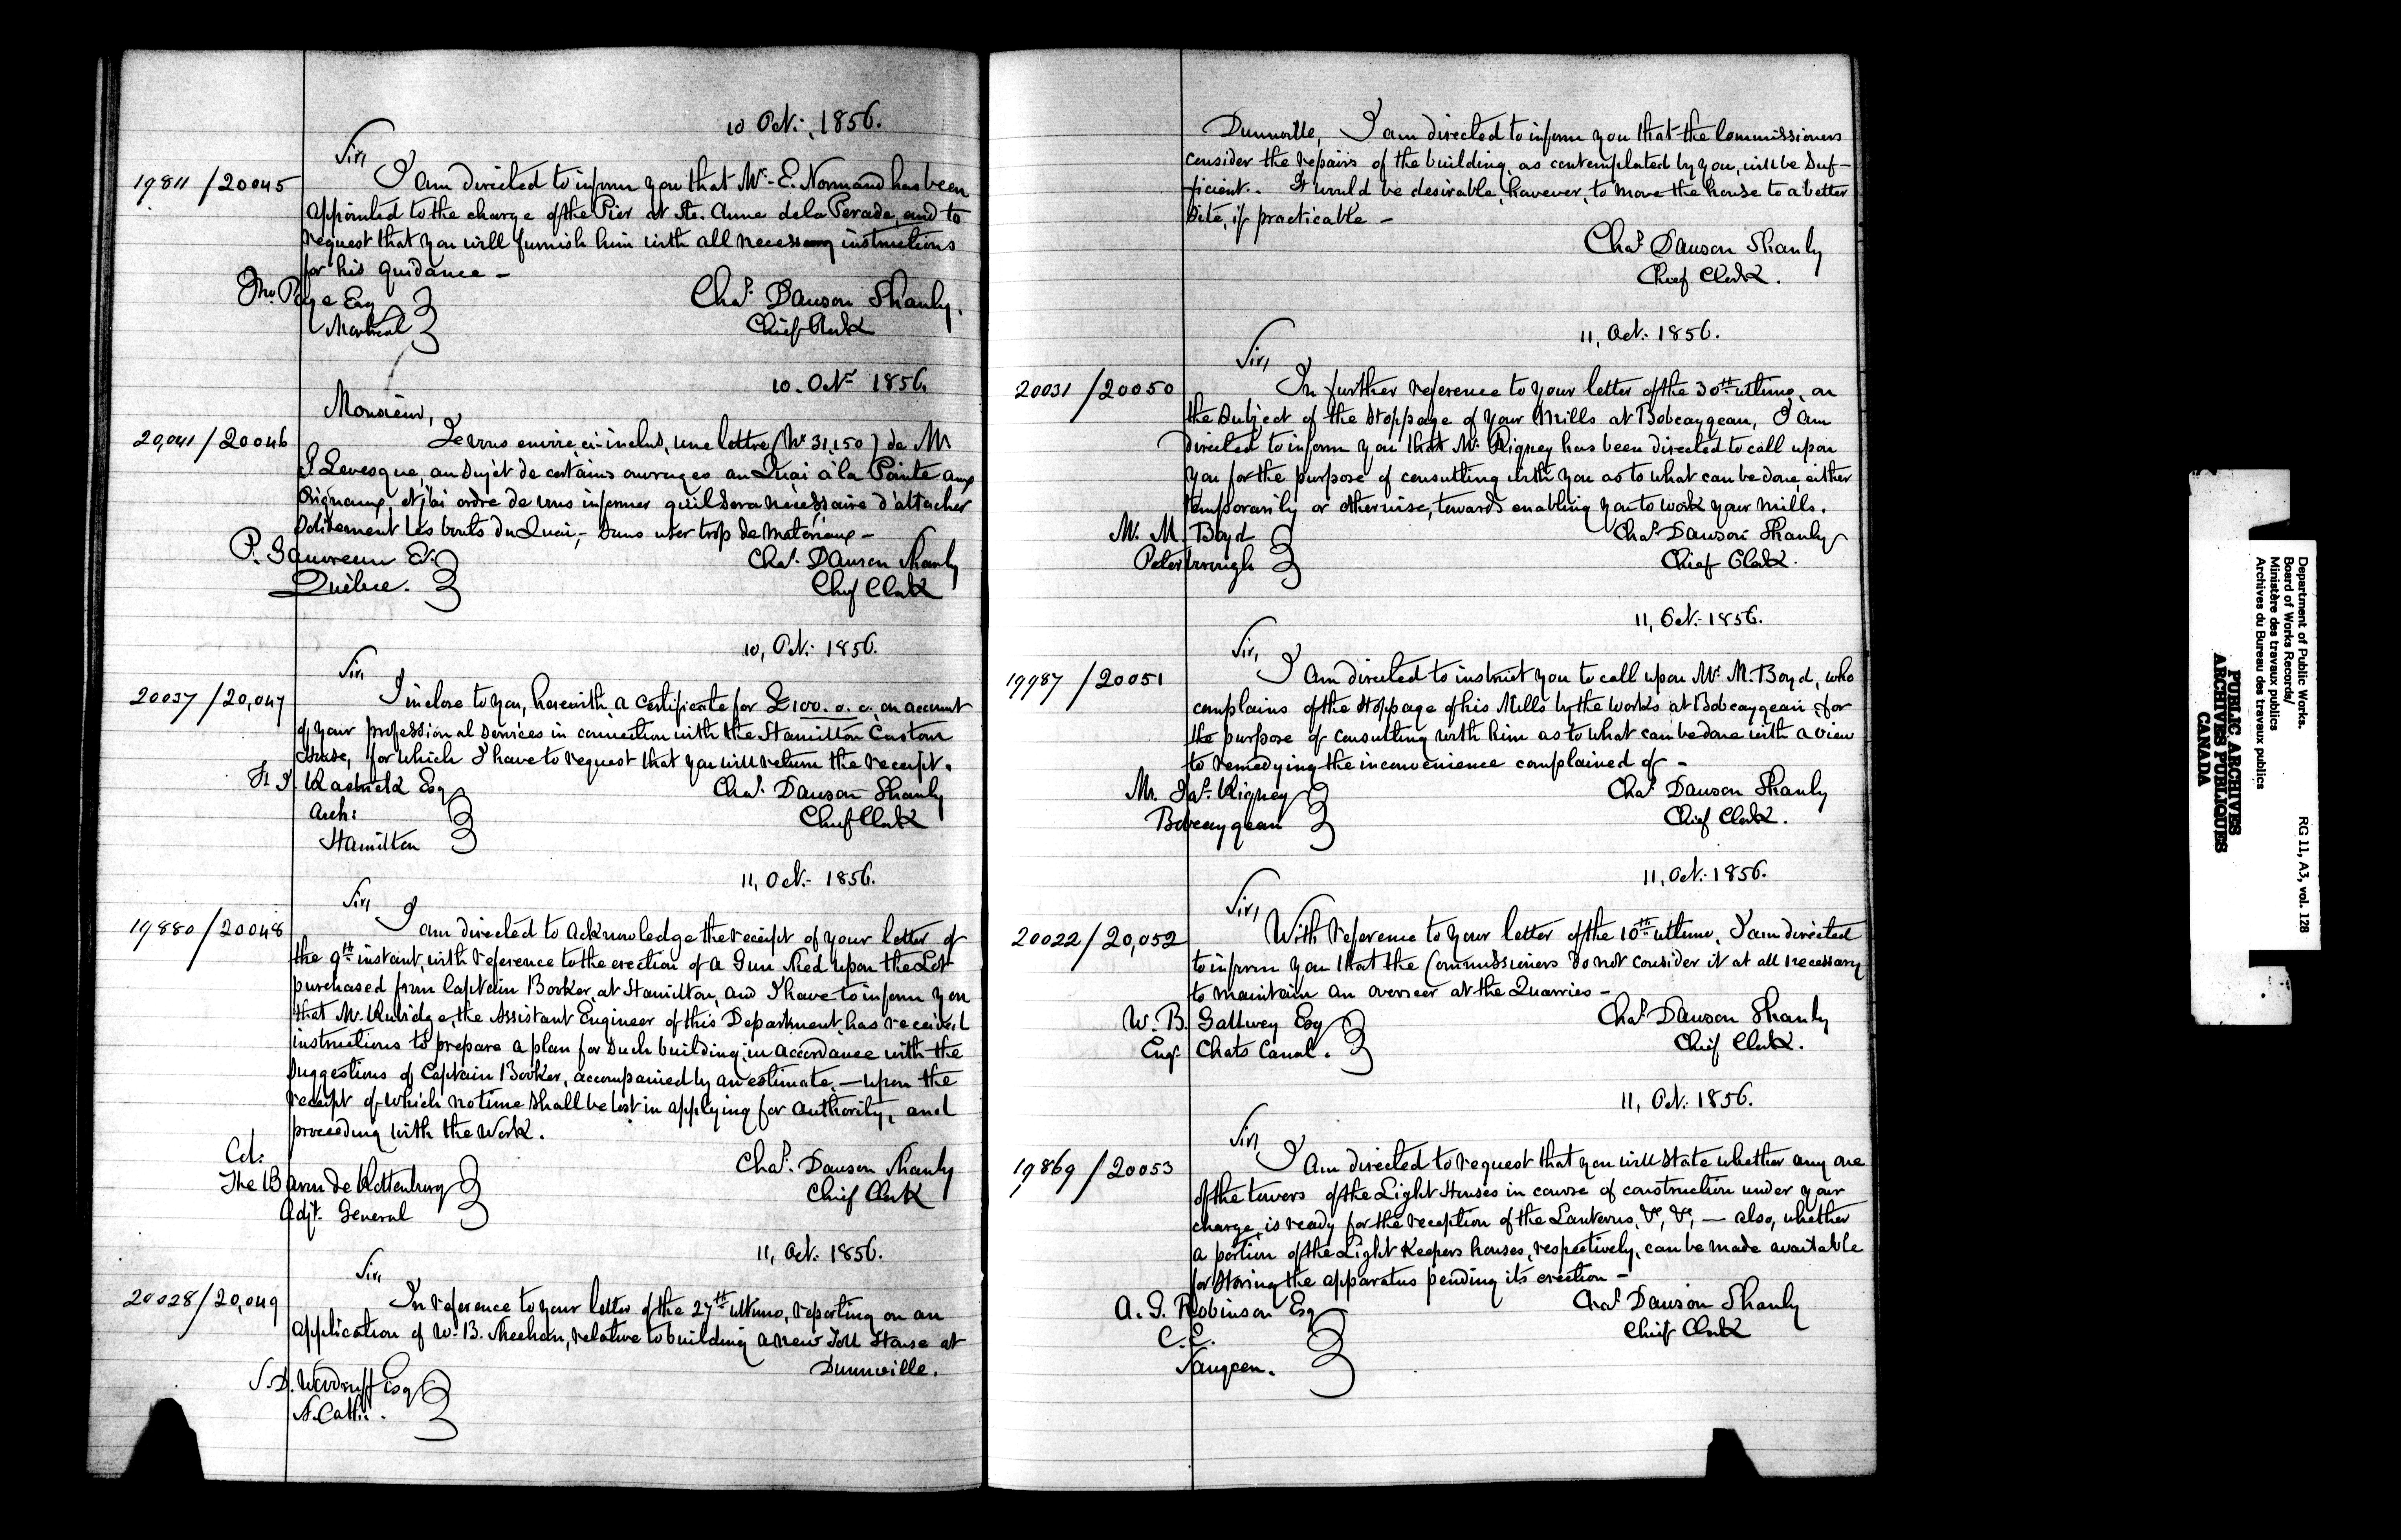 10 Oct: 1856.
Sir,
19811 / 20045
I am directed to inform you that Mr. E. Normand has been
appointed to the charge of the Pier at Ste. Anne de la Perade, and to
request that you will furnish him with all necessary instructions
for his guidance —
Jno Page Esq
Montreal
Chas. Dawson Shanly.
Chief Clerk
10. Octr 1856.
Monsieur,
20,041 / 20046
Je vous envoie, ci-inclus, une lettre (No 31,150) de M
P. Levesque, au sujet de certains ouvrages au Quai à la Pointe aux
Orignaux, et j'ai ordre de vous informer qu'il sera nécéssaire d'attacher
solidement les bouts du Quai, - sans user trop de materiaux —
P. Gauvreau Er.
Québec.
Chas. Dawson Shanly
Chief Clerk
10, Oct: 1856.
Sir,
20037 / 20,047
I inclose to you, herewith, a certificate for £100. 0. 0. on account
of your professional services in connection with the Hamilton Custom
House, for which I have to request that you will return the receipt.
F. J. Rastrick Esq
Arch:
Hamilton
Chas. Dawson Shanly
Chief Clerk
11, Oct: 1856.
Sir,
19880 / 20048
I am directed to acknowledge the receipt of your letter of
the 9th instant, with reference to the erection of a Gun Shed upon the Lot
purchased from Captain Booker, at Hamilton, and I have to inform you
that Mr. Rubidge, the Assistant Engineer of this Department, has received
instructions to prepare a plan for such building, in accordance with the
suggestions of Captain Booker, accompanied by an estimate, — upon the
receipt of which no time shall be lost in applying for authority, and
proceeding with the work.
Col:
The Baron de Rottenburg
Adjt. General
Chas. Dawson Shanly
Chief Clerk
11, Oct: 1856.
Sir,
20028 / 20,049
In reference to your letter of the 27th ultimo, reporting on an
application of W. B. Sheehan, relative to building a new Toll House at
Dunnville.
S. D. Woodruff Esq
St. Cath:
Dunnville, I am directed to inform you that the Commissioners
consider the repairs of the building, as contemplated by you, will be suf-
ficient. It would be desirable, however, to move the house to a better
site, if practicable —
Chas. Dawson Shanly
Chief Clerk.
11, Oct: 1856.
Sir,
20031 / 20050
In further reference to your letter of the 30th ultimo, on
the subject of the stoppage of your Mills at Bobcaygean, I am
directed to inform you that Mr. Rigney has been directed to call upon
you for the purpose of consulting with you as to what can be done, either
temporarily or otherwise, towards enabling you to work your mills.
Mr. M. Boyd
Peterborough
Chas. Dawson Shanly
Chief Clerk.
11, Oct: 1856.
Sir,
19987 / 20051
I am directed to instruct you to call upon Mr. M. Boyd, who
complains of the stoppage of his Mills by the works at Bobcaygean, for
the purpose of consulting with him as to what can be done with a view
to remedying the inconvenience complained of —
Mr. Jas. Rigney
Bobcaygean
Chas. Dawson Shanly
Chief Clerk.
11, Oct: 1856.
Sir,
20022 / 20,052
With reference to your letter of the 10th ultimo, I am directed
to inform you that the Commissioners do not consider it at all necessary
to maintain an overseer at the Quarries —
W. B. Gallwey Esq
Engr. Chats Canal.
Chas. Dawson Shanly
Chief Clerk.
11, Oct: 1856.
Sir,
19869 / 20053
I am directed to request that you will state whether any one
of the towers of the Light Houses in course of construction under your
charge, is ready for the reception of the Lanterns, &c, &c, — also, whether
a portion of the Light Keepers houses, respectively, can be made available
for storing the apparatus pending its erection —
A. G. Robinson Esq
C. E.
Saugeen.
Chas. Dawson Shanly
Chief Clerk
Department of Public Works.
Board of Works Records/
Ministère des travaux publics
Archives du Bureau des travaux publics
RG 11, A3, vol. 128
PUBLIC ARCHIVES
ARCHIVES PUBLIQUES
CANADA